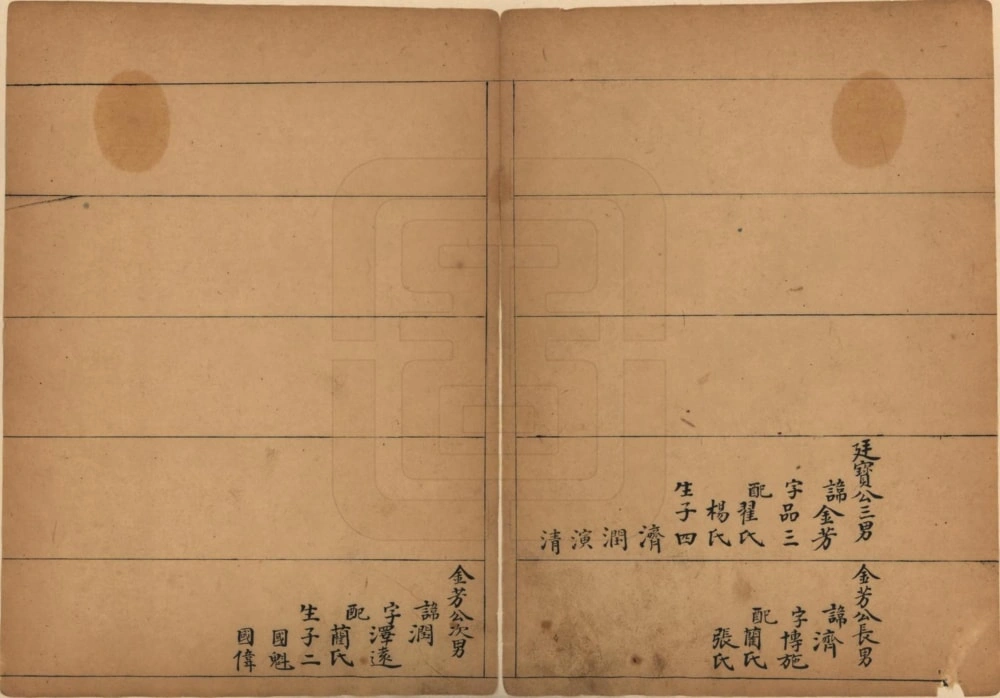 廷寶公三男
諱金芳
字品三
配翟氏
楊氏
生子四
濟
潤
演
清
金芳公長男
諱濟
字博施
配藺氏
張氏
金芳公次男
諱潤
字澤遠
配藺氏
生子二
國魁
國偉